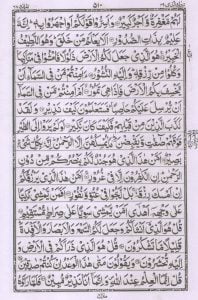 ٥١٠
لَهُمْ مَّغْفِرَةٌ وَّاَجْرٌ كَبِيْرٌ وَاَسِرُّوْا قَوْلَكُمْ اَوِ اجْهَرُوْا بِهٖ اِنَّهٗ
عَلِيْمٌ بِذَاتِ الصُّدُوْرِ اَلَا يَعْلَمُ مَنْ خَلَقَ وَهُوَ اللَّطِيْفُ
الْخَبِيْرُ هُوَ الَّذِيْ جَعَلَ لَكُمُ الْاَرْضَ ذَلُوْلًا فَامْشُوْا فِيْ مَنَاكِبِهَا
وَكُلُوْا مِنْ رِّزْقِهٖ وَاِلَيْهِ النُّشُوْرُ ءَاَمِنْتُمْ مَّنْ فِي السَّمَآءِ اَنْ
يَّخْسِفَ بِكُمُ الْاَرْضَ فَاِذَا هِيَ تَمُوْرُ اَمْ اَمِنْتُمْ مَّنْ فِي السَّمَآءِ
اَنْ يُّرْسِلَ عَلَيْكُمْ حَاصِبًا فَسَتَعْلَمُوْنَ كَيْفَ نَذِيْرِ وَلَقَدْ
كَذَّبَ الَّذِيْنَ مِنْ قَبْلِهِمْ فَكَيْفَ كَانَ نَكِيْرِ اَوَلَمْ يَرَوْا اِلَى الطَّيْرِ
فَوْقَهُمْ صٰٓفّٰتٍ وَّيَقْبِضْنَ مَا يُمْسِكُهُنَّ اِلَّا الرَّحْمٰنُ اِنَّهٗ بِكُلِّ شَيْءٍ
بَصِيْرٌ اَمَّنْ هٰذَا الَّذِيْ هُوَ جُنْدٌ لَّكُمْ يَنْصُرُكُمْ مِّنْ دُوْنِ
الرَّحْمٰنِ اِنِ الْكٰفِرُوْنَ اِلَّا فِيْ غُرُوْرٍ اَمَّنْ هٰذَا الَّذِيْ يَرْزُقُكُمْ
اِنْ اَمْسَكَ رِزْقَهٗ بَلْ لَّجُّوْا فِيْ عُتُوٍّ وَّنُفُوْرٍ اَفَمَنْ يَّمْشِيْ مُكِبًّا
عَلٰى وَجْهِهٖٓ اَهْدٰٓى اَمَّنْ يَّمْشِيْ سَوِيًّا عَلٰى صِرَاطٍ مُّسْتَقِيْمٍ
قُلْ هُوَ الَّذِيْٓ اَنْشَاَكُمْ وَجَعَلَ لَكُمُ السَّمْعَ وَالْاَبْصَارَ وَالْاَفْـِٕدَةَ
قَلِيْلًا مَّا تَشْكُرُوْنَ قُلْ هُوَ الَّذِيْ ذَرَاَكُمْ فِي الْاَرْضِ وَ
اِلَيْهِ تُحْشَرُوْنَ وَيَقُوْلُوْنَ مَتٰى هٰذَا الْوَعْدُ اِنْ كُنْتُمْ صٰدِقِيْنَ
قُلْ اِنَّمَا الْعِلْمُ عِنْدَ اللّٰهِ وَاِنَّمَآ اَنَا نَذِيْرٌ مُّبِيْنٌ فَلَمَّا رَاَوْهُ